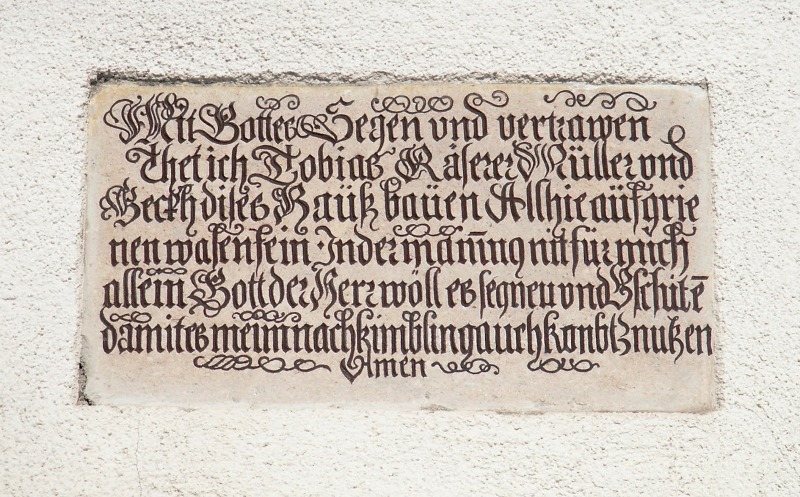 Mit Gottes Segen vnd vertrawen
Thet ich Tobias Käserer Müller vnd
Beckh dises Hauß bauen Allhie auf grie
nen wasen fein Jn der mainung nit für mich
allein Gott der Herr wöll es segnen vnd Bschitē
damit es mein nachkimbling auch konbtz nutzen
Amen